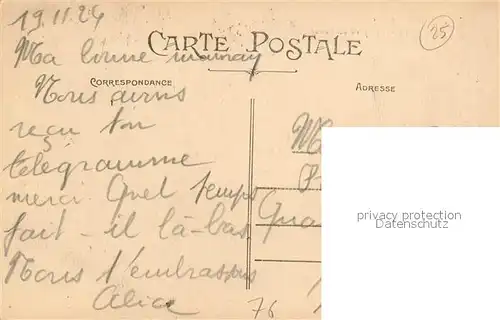 19.11.24
25
Ma bonne
CARTE POSTALE
CORRESPONDANCE
ADRESSE
Nous avons
reçu ton
télégramme
merci Quel temps
fait-il là-bas
Nous t'embrassons
Alice
76
privacy protection
Datenschutz